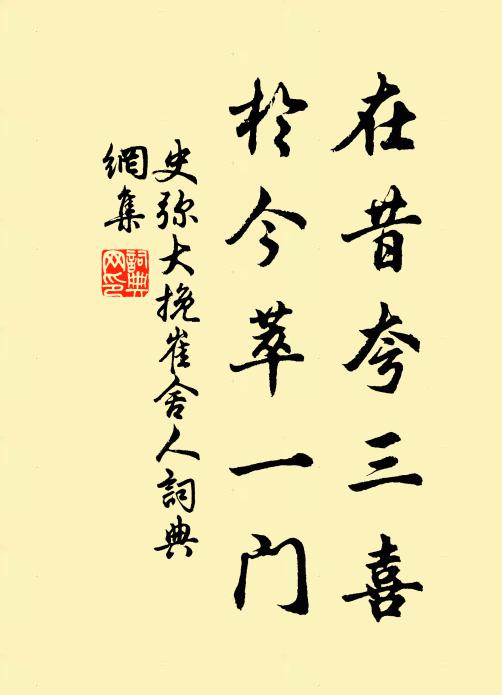 在昔夸三喜
於今萃一门
史弥大挽崔舍人詞典
網集
詞典網印